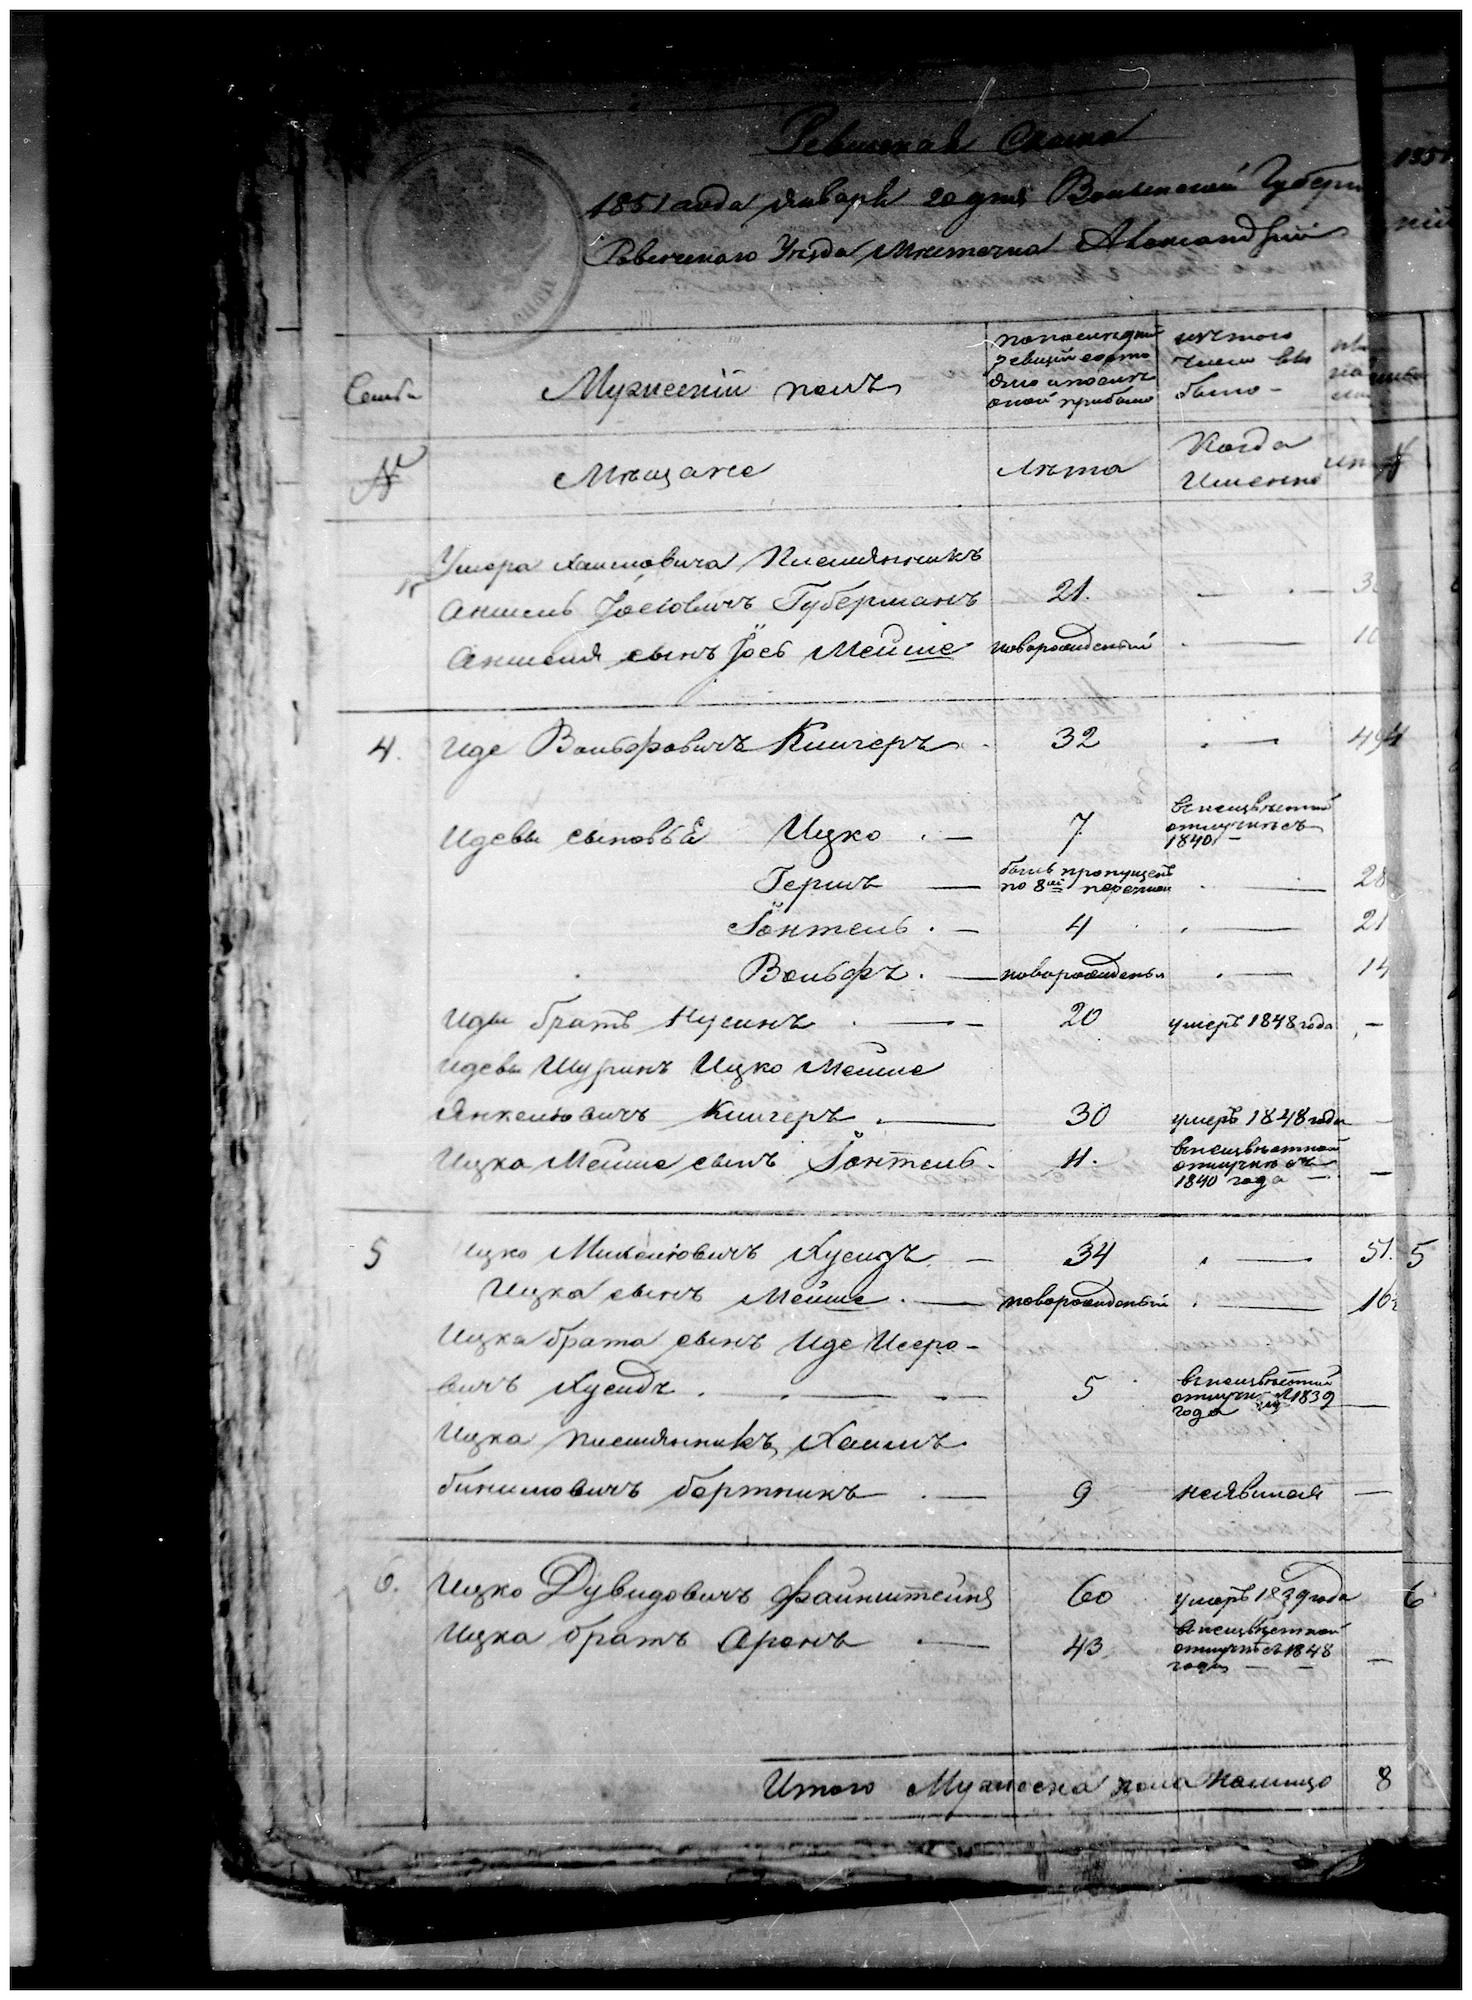 Ревизская Сказка
1851 года Января 20 дня Волынской Губерн
Ровенского Уезда Местечка Александріи
Семьи
Мужескій полъ
по последней
ревизіи состо
яло и после
оной прибыло
изъ того
числа вы
было
№
Мещане
лета
Когда
Именно
Умера Хаимовича Племянникъ
Аншель Іосіовичъ Губерманъ 21. 3
Аншеля сынъ Іось Мейше новорожденный
4. Иде Вольфовичъ Клигеръ 32 49 4
Идевы сыновья Ицко 7 в неизвестной
отлучке съ
1840
Гершъ былъ пропущенъ
по 8ой переписи 28
Іонтель 4 21
Вольфъ новорожденъ 14
Иды братъ Нусинъ 20 умеръ 1848 года
Идевы Шуринъ Ицко Мейше
Янкелювичъ Клигеръ 30 умеръ 1848 года
Ицка Мейше сынъ Іонтель 11. в неизвестной
отлучке съ
1840 года
5 Ицко Михелювичъ Хусидъ 34 51. 5
Ицка сынъ Мейше новорожденный 16
Ицка брата сынъ Иде Исеро-
вичъ Хусидъ 5 в неизвестной
отлучке 1839
года
Ицка племянникъ Хаимъ
Бинимовичъ Бортникъ 9 неявился
6. Ицко Дувидовичъ Файнштейнъ 60 умеръ 1839 года 6
Ицка братъ Аронъ 43 в неизвестной
отлучке съ 1848
года
Итого Мужеска пола налицо 8